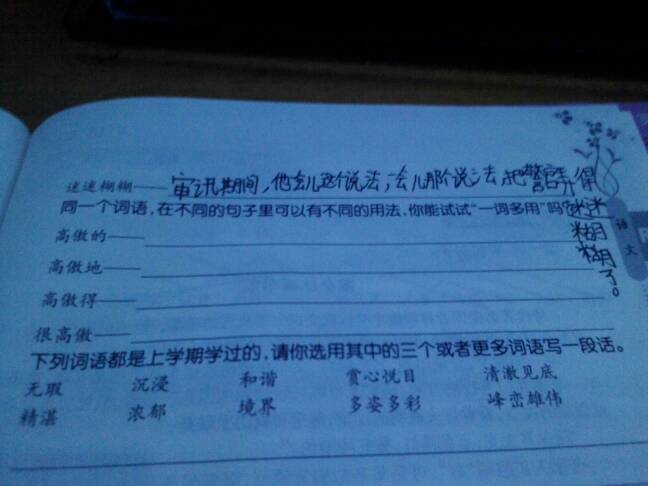 迷迷糊糊——审讯期间，他会儿这个说法，会儿那个说法，把警官弄得迷迷糊糊了。
同一个词语，在不同的句子里可以有不同的用法，你能试试“一词多用”吗？
高傲的——
高傲地——
高傲得——
很高傲——
下列词语都是上学期学过的，请你选用其中的三个或者更多词语写一段话。
无瑕 沉浸 和谐 赏心悦目 清澈见底
精湛 浓郁 境界 多姿多彩 峰峦雄伟
语文